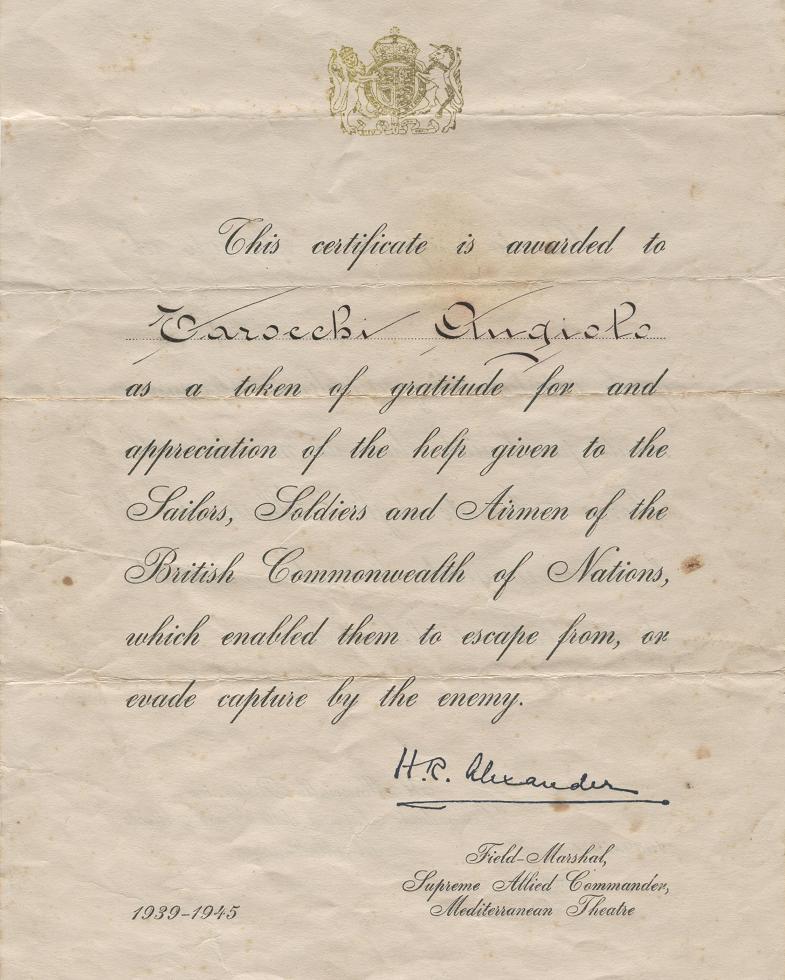 This certificate is awarded to
Tarocchi Angiolo
as a token of gratitude for and
appreciation of the help given to the
Sailors, Soldiers and Airmen of the
British Commonwealth of Nations,
which enabled them to escape from, or
evade capture by the enemy.
H.R. Alexander
Field-Marshal,
Supreme Allied Commander,
Mediterranean Theatre
1939-1945